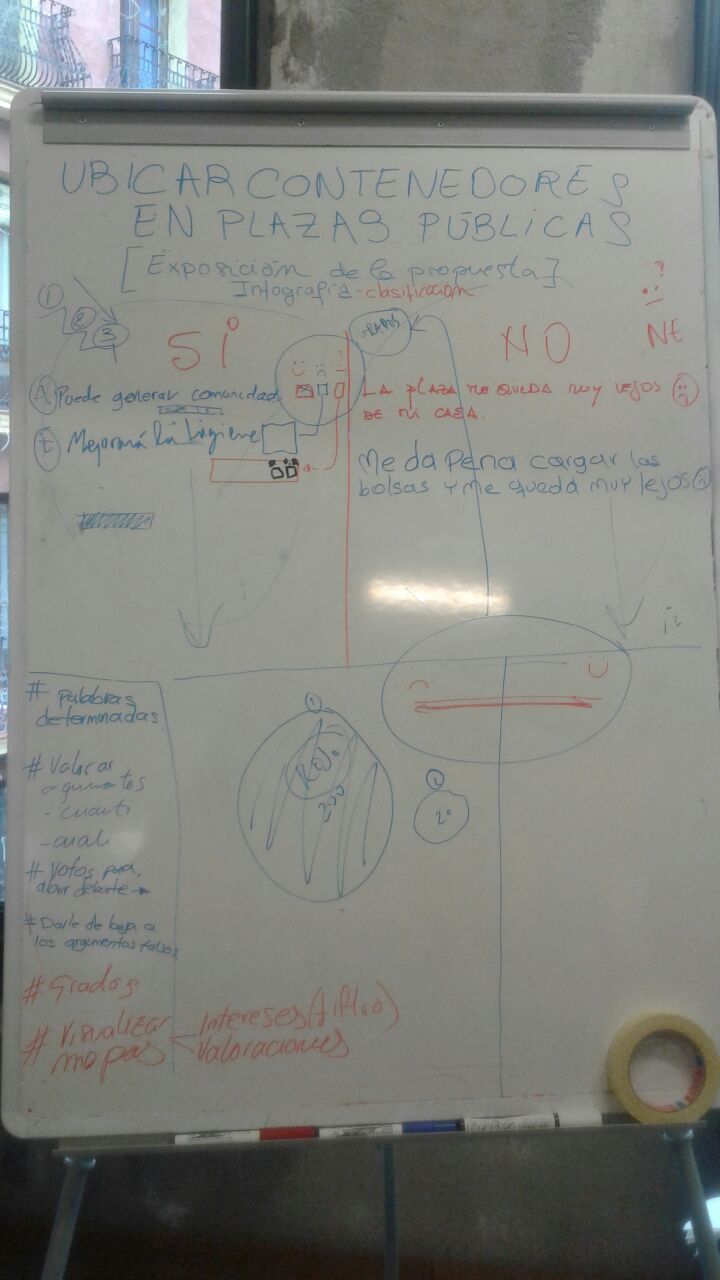 UBICAR CONTENEDORES
EN PLAZAS PÚBLICAS
[Exposición de la propuesta]
Infografía-clasificación
1
2
3
SÍ
NO
?
NE
A Puede generar comunidad
Mejorará la higiene
LA PLAZA ME QUEDA MUY LEJOS
DE MI CASA.
Me da pena cargar las
bolsas y me queda muy lejos
# Palabras
determinadas
# Valorar
argumentos
- cuanti
- cuali
# Votos para
abrir debate
# Darle de baja a
los argumentos falsos
# Grados
# Visualizar
mapas
Intereses
Valoraciones
1
200
2
20